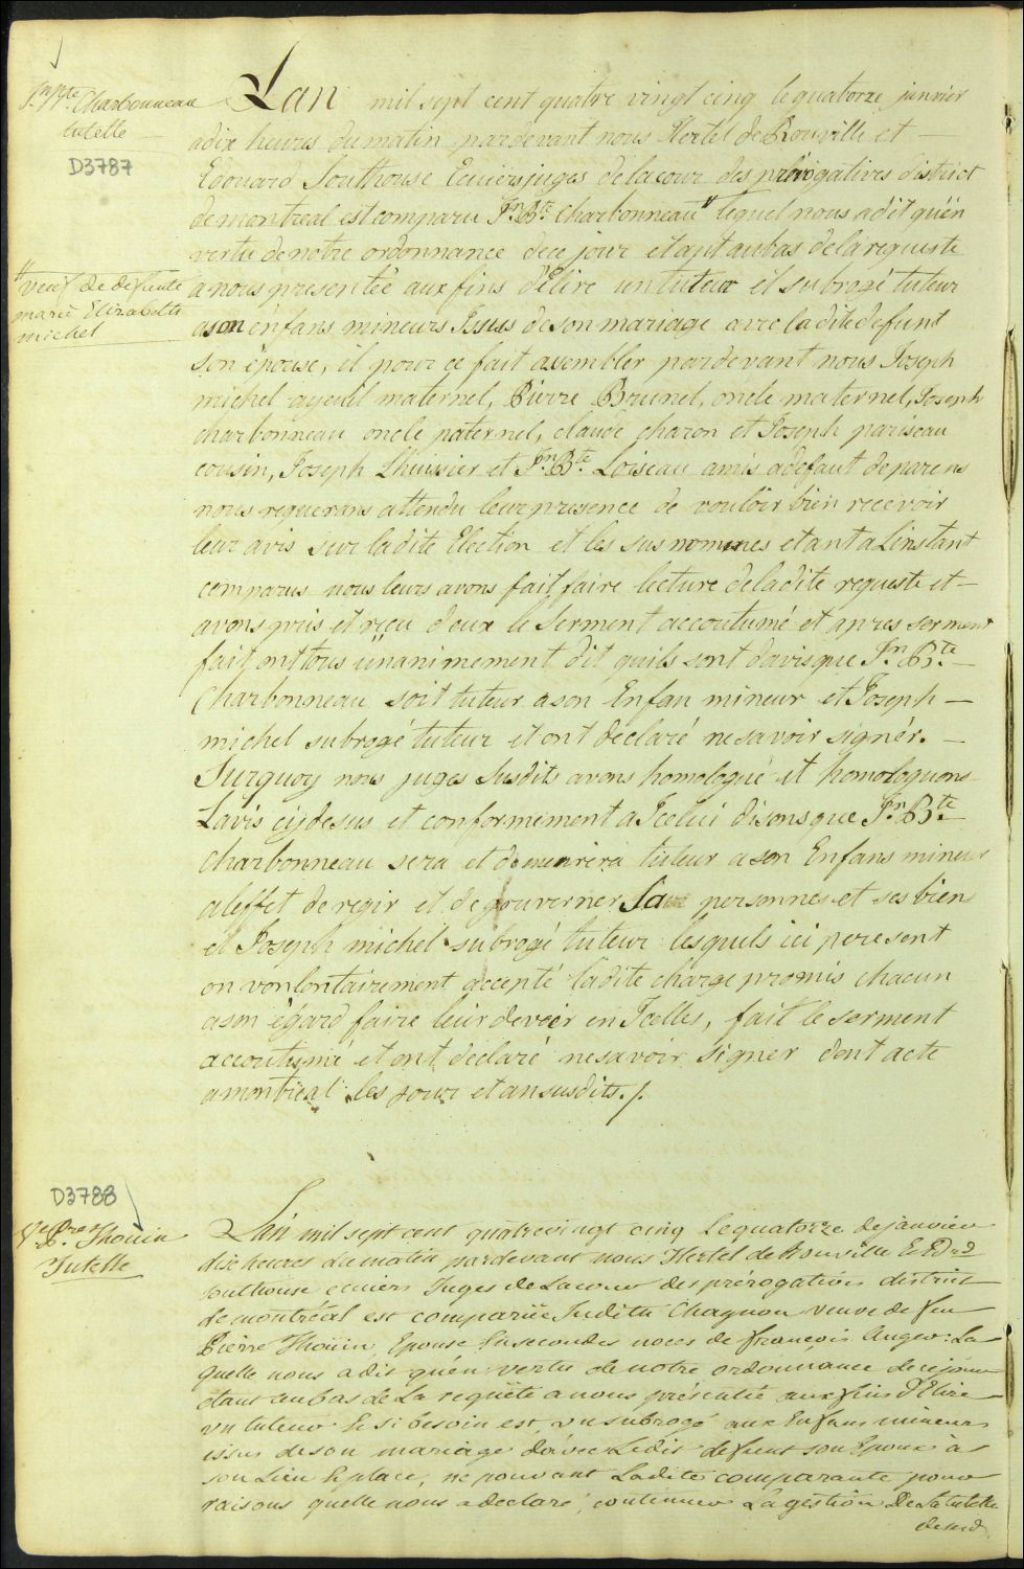 Jn Bte Charbonneau
tutelle
D3787
Lan mil sept cent quatre vingt cinq le quatorze janvier
a dix heures du matin pardevant nous Hertel de Rouville et
Edouard Southouse Ecuiers juges de la cour des prérogatives district
de montreal est comparu Jn Bte Charbonneau // lequel nous a dit qu'en
vertu de notre ordonnance de ce jour etant au bas de la requeste
// veuf de defunte
marie Elizabeth
michel
a nous presentée aux fins d'Elire un tuteur et subrogé tuteur
a son enfans mineurs Issus de son mariage avec la dite defunt
son épouse, il pour ce fait assembler pardevant nous Joseph
michel ayeuil maternel, Pierre Brunel, oncle maternel, Joseph
charbonneau oncle paternel, claude charon et Joseph pariseau
cousin, Joseph Lhuissier et Jn Bte Loiseau amis a defaut de parens
nous requerans attendu leur presence de vouloir bien recevoir
leur avis sur ladite Election et les sus nommes etant a Linstant
comparus nous leurs avons fait faire lecture de ladite requeste et
avons pris et reçu d'eux le serment accoutumé et apres serment
fait ont tous unanimement dit quils sont davis que Jn Bte
Charbonneau soit tuteur a son Enfan mineur et Joseph
michel subrogé tuteur et ont déclaré ne savoir signér.
Surquoy nous juges susdits avons homologué et homologuons
Lavis cydesus et conformement a Icelui disons que Jn Bte
Charbonneau sera et demeurera tuteur a son Enfans mineur
a leffet de regir et de gouverner sa personnes et ses biens
et Joseph michel subrogé tuteur lesquels ici peresent
on vonlontairement accepté ladite charge promis chacun
a son égard faire leur devoir en Icelles, fait le serment
accoutumé et ont declaré ne savoir signer dont acte
a montreal les jour et an susdits./.
D3788
Ve Pre Thouin
Tutelle
Lan mil sept cent quatrevingt cinq Le quatorze de janvier
dix heures du matin pardevant nous Hertel de Rouville & Edrd
southouse ecuiers Juges de La cour des prérogatives district
de montréal est comparüe Judith Chagnon veuve de feu
Pierre Thoüin, Epouse En secondes noces de françois Auger: La
quelle nous a dit qu'en vertu de notre ordonnance de ce jour
étant au bas de La requête a nous présentée aux fins d'Elire
un tuteur & si besoin est, un subrogé aux Enfans mineurs
issus de son mariage d'avec Ledit defunt son Epoux à
son Lieu & place, ne pouvant Ladite comparante pour
raisons quelle nous a declaré, continuer La gestion De La tutelle